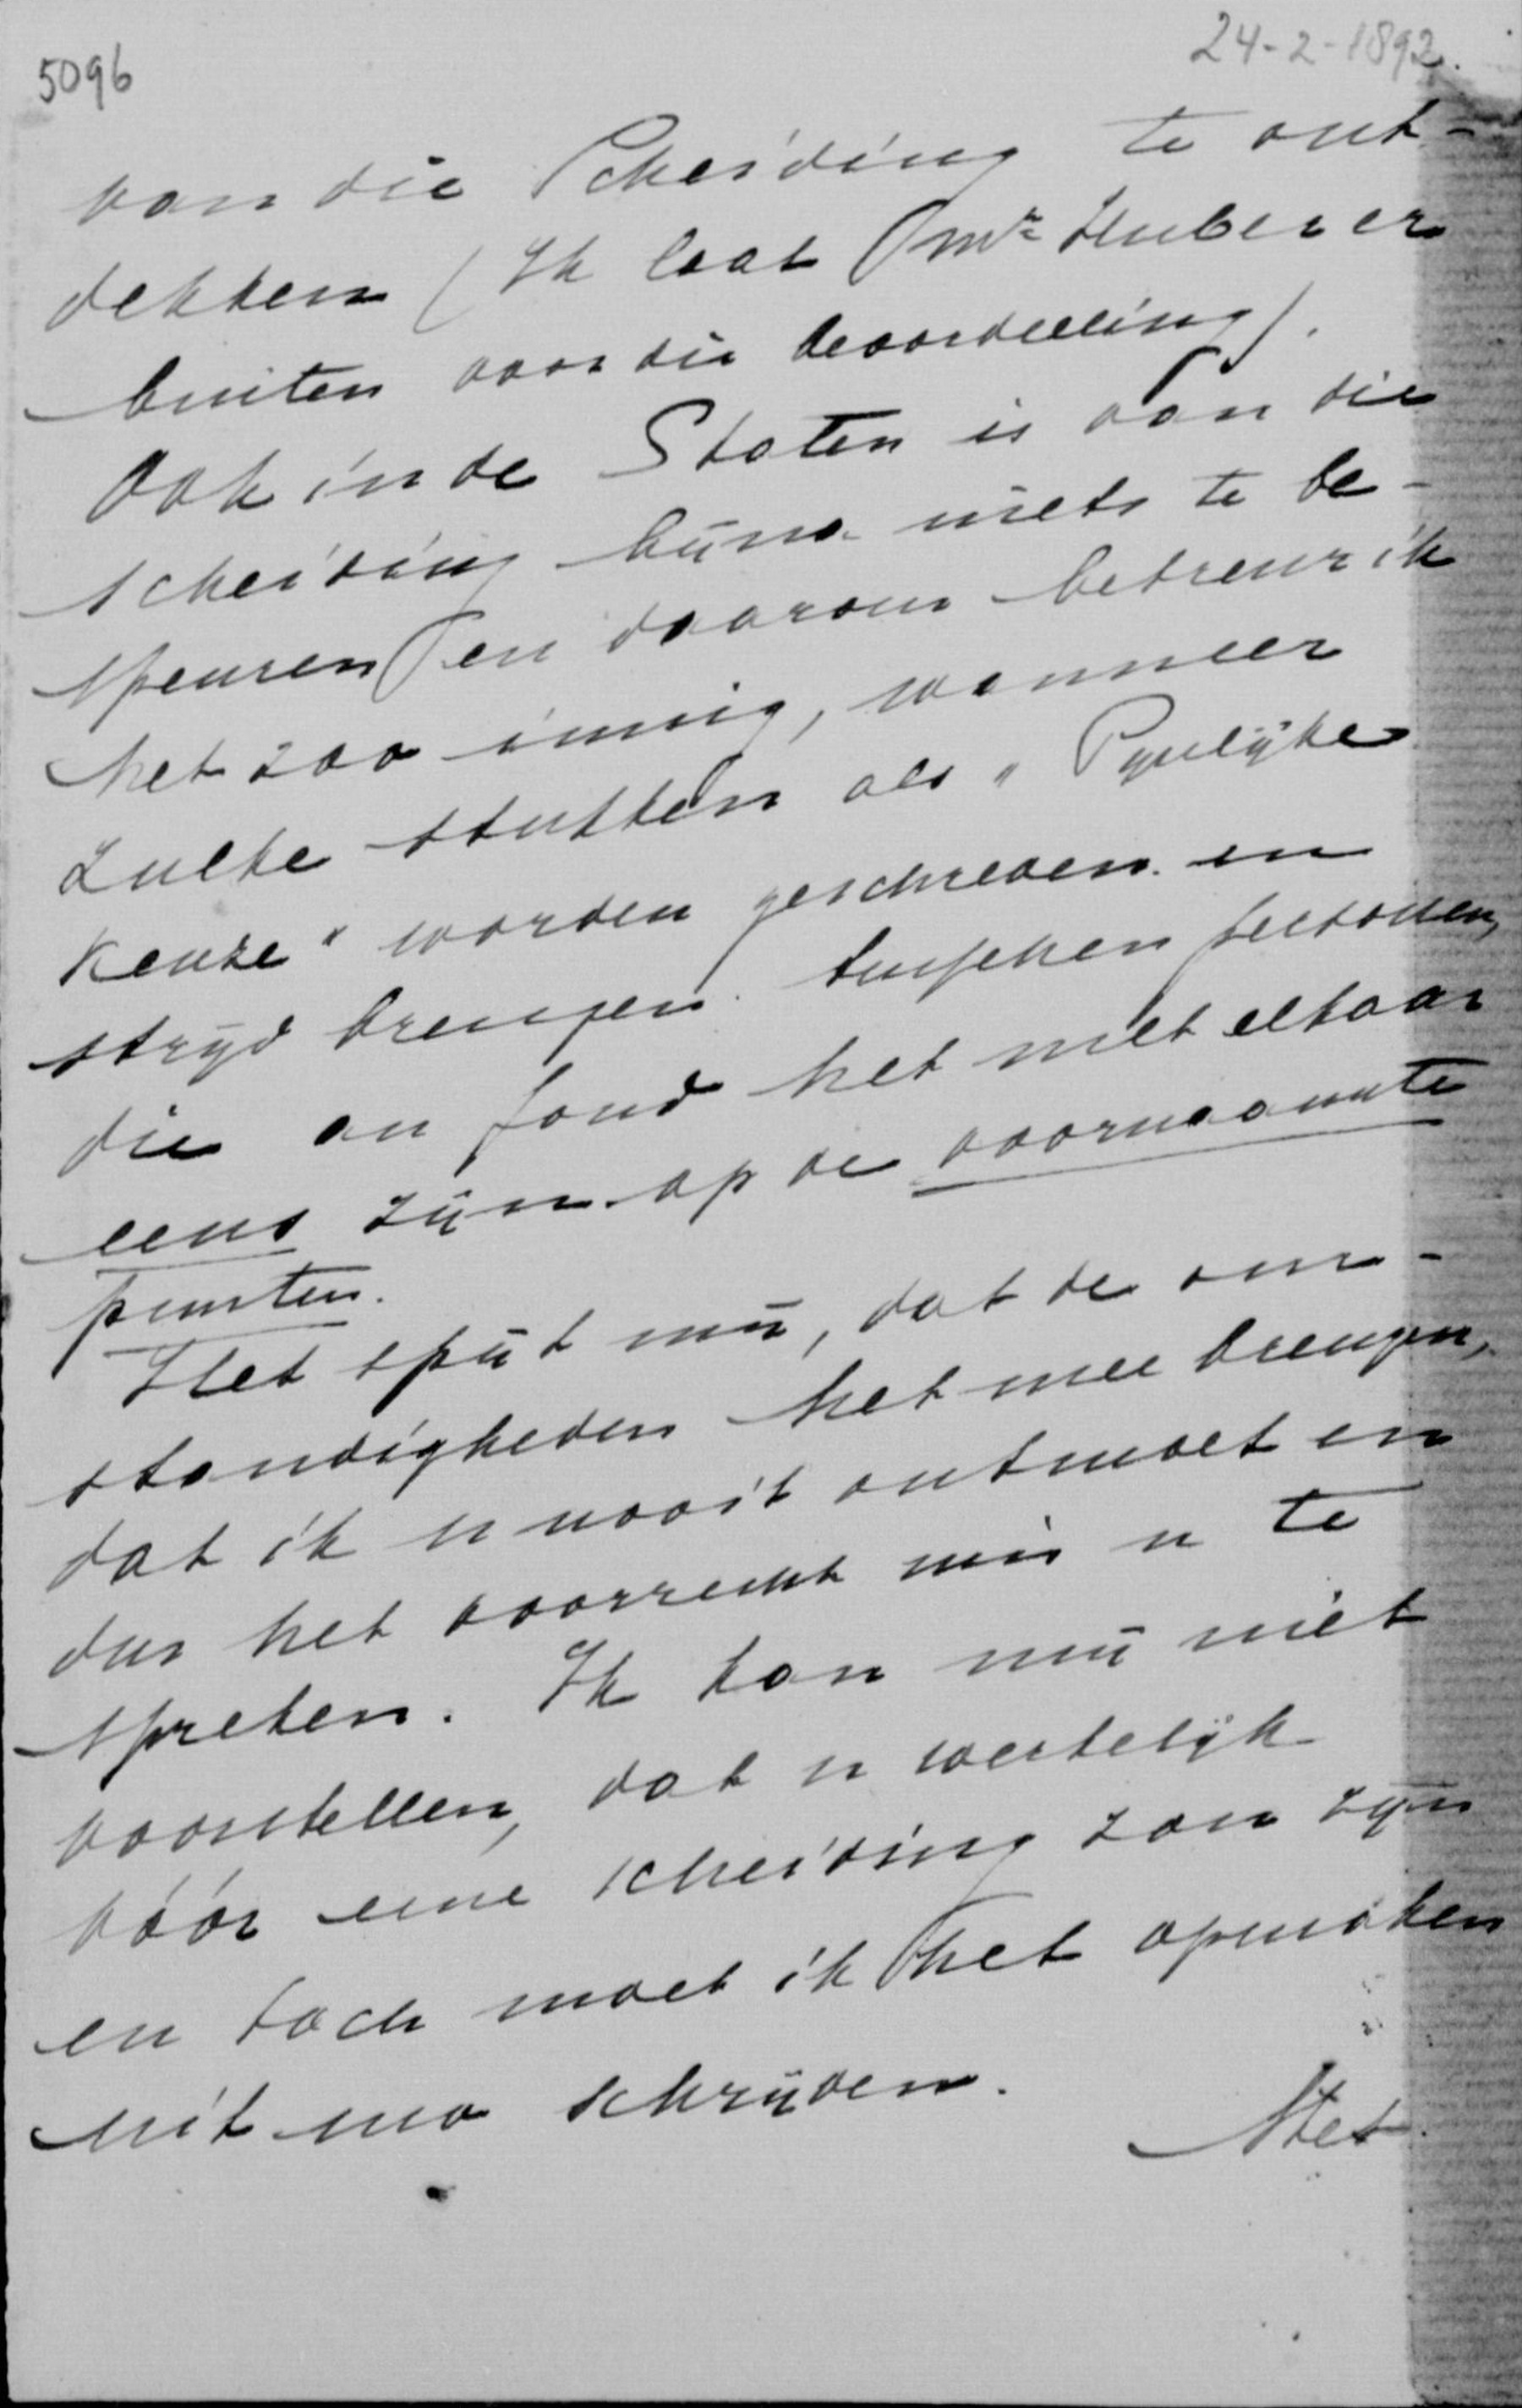 5096
24-2-1892.
van die Scheiding te ont-
dekken (Ik laat Mr Huber er
buiten voor die beoordeeling).
Ook in de Staten is van die
scheiding bijna niets te be-
speuren en daarom betreur ik
het zoo innig, wanneer
zulke stukken als "Pijnlijke
Keuze" worden geschreven en
strijd brengen tusschen personen,
die au fond het met elkaar
eens zijn op de voornaamste
punten.
Het spijt mij, dat de om-
standigheden het mee brengen,
dat ik u nooit ontmoet en
dus het voorrecht mis u te
spreken. Ik kan mij niet
voorstellen, dat u werkelijk
vóór eene scheiding zou zijn
en toch moet ik het opmaken
uit uw schrijven.
Met